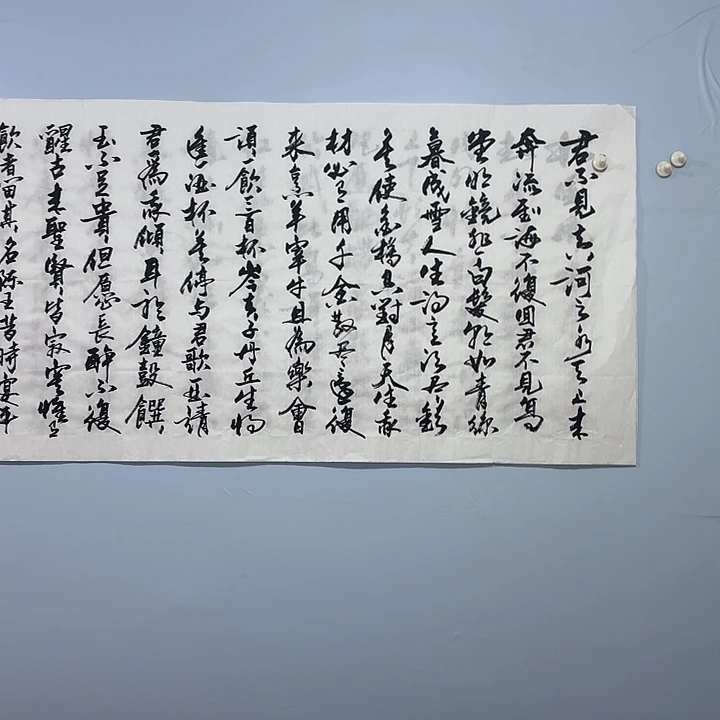 君不見黄河之水天上来
奔流到海不復回君不見高
堂明鏡悲白髮朝如青絲
暮成雪人生得意須盡歡
莫使金樽空對月天生我
材必有用千金散盡還復
来烹羊宰牛且為樂會
須一飲三百杯岑夫子丹丘生將
進酒杯莫停与君歌一曲請
君為我傾耳聽鐘鼓饌
玉不足貴但願長醉不復
醒古来聖賢皆寂寞惟有
飲者留其名陳王昔時宴平